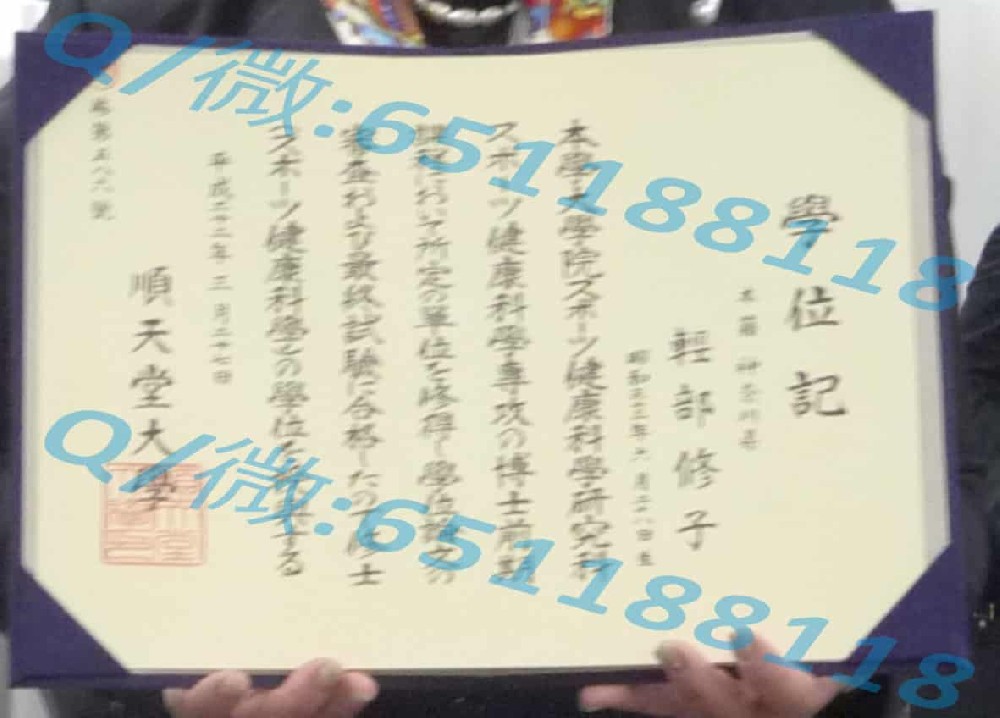 學位記
本籍 神奈川県
輕部修子
昭和三十三年六月二十八日生
本學大學院スポーツ健康科學研究科
スポーツ健康科學専攻の博士前期
課程において所定の單位を修得し學位論文の
審査および最終試驗に合格したので修士
スポーツ健康科學との學位を する
平成二十二年三月二十七日
順天堂大學
第五八六號
Q/微:651188118
Q/微:651188118